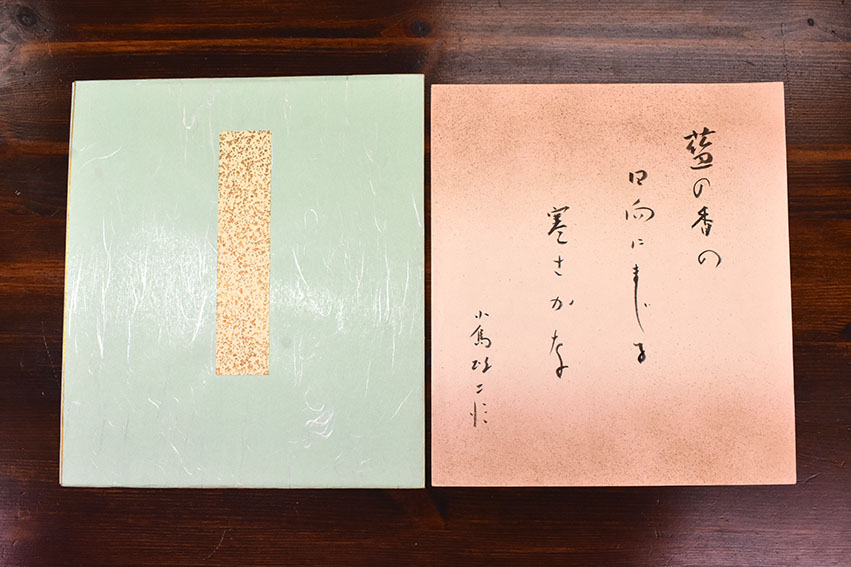 藍の香の
日向にまじる
寒さかな
小島